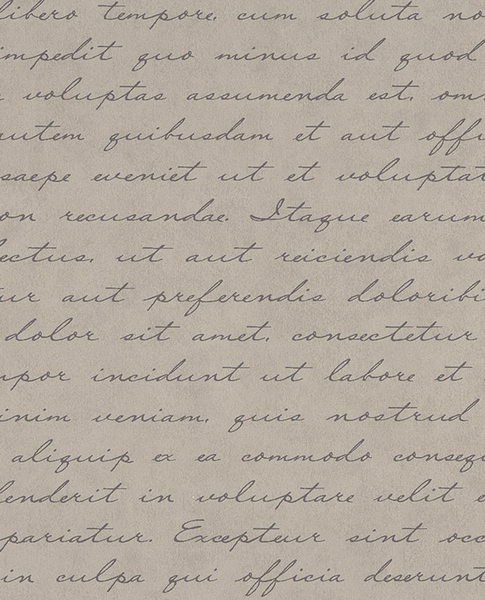 libero tempore, cum soluta no
impedit quo minus id quod
voluptas assumenda est, om
autem quibusdam et aut offi
saepe eveniet ut et voluptat
on recusandae. Itaque earum
ectus, ut aut reiciendis vo
ur aut preferendis doloribi
dolor sit amet, consectetur
mpor incidunt ut labore et
inim veniam, quis nostrud
aliquip ex ea commodo consequ
henderit in voluptare velit e
pariatur. Excepteur sint occ
in culpa qui officia deserunt